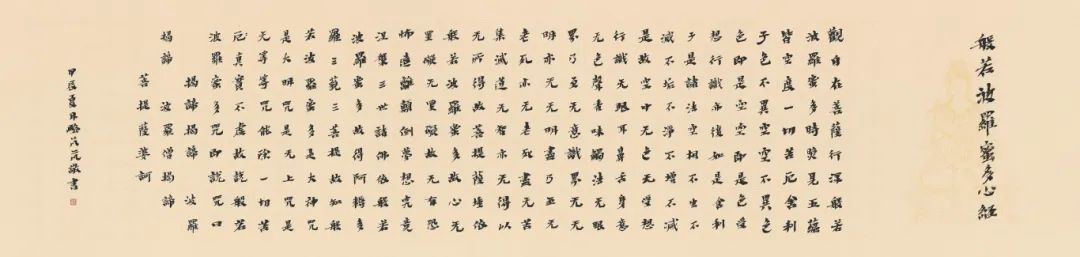 般若波羅蜜多心經
觀自在菩薩行深般若
波羅蜜多時照見五蘊
皆空度一切苦厄舍利
子色不異空空不異色
色即是空空即是色受
想行識亦復如是舍利
子是諸法空相不生不
滅不垢不淨不增不減
是故空中无色无受想
行識无眼耳鼻舌身意
无色聲香味觸法无眼
界乃至无意識界无无
明亦无无明盡乃至无
老死亦无老死盡无苦
集滅道无智亦无得以
无所得故菩提薩埵依
般若波羅蜜多故心无
罣礙无罣礙故无有恐
怖遠離顛倒夢想究竟
涅槃三世諸佛依般若
波羅蜜多故得阿耨多
羅三藐三菩提故知般
若波羅蜜多是大神咒
是大明咒是无上咒是
无等等咒能除一切苦
厄真實不虛故說般若
波羅蜜多咒即說咒曰
揭諦揭諦 波羅
揭諦 波羅僧揭諦
菩提薩婆訶
甲辰夏月駱芃芃敬書